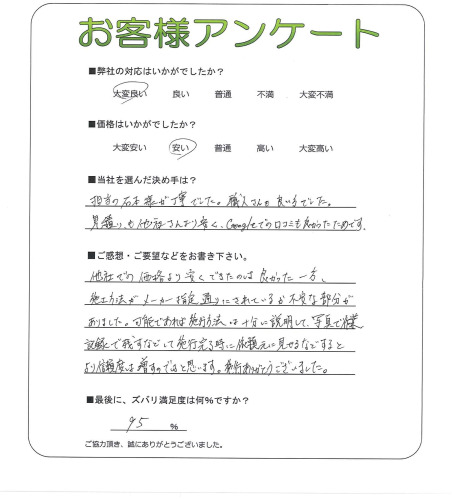 お客様アンケート
■弊社の対応はいかがでしたか?
大変良い 良い 普通 不満 大変不満
■価格はいかがでしたか?
大変安い 安い 普通 高い 大変高い
■当社を選んだ決め手は?
担当の石本様が丁寧でした。職人さんも良い方でした。
見積りも他社さんより安く、Googleでの口コミも良かったためです。
■ご感想・ご要望などをお書き下さい。
他社での価格より安くできたのは良かった一方、
施工方法がメーカー指定通りにされているか不安な部分が
ありました。可能であれば施行方法は十分に説明して、写真で作業
記録で残すなどして施行完了時に依頼元に見せるなどすると
より信頼度は増すのではと思います。施行ありがとうございました。
■最後に、ズバリ満足度は何%ですか?
95 %
ご協力頂き、誠にありがとうございました。